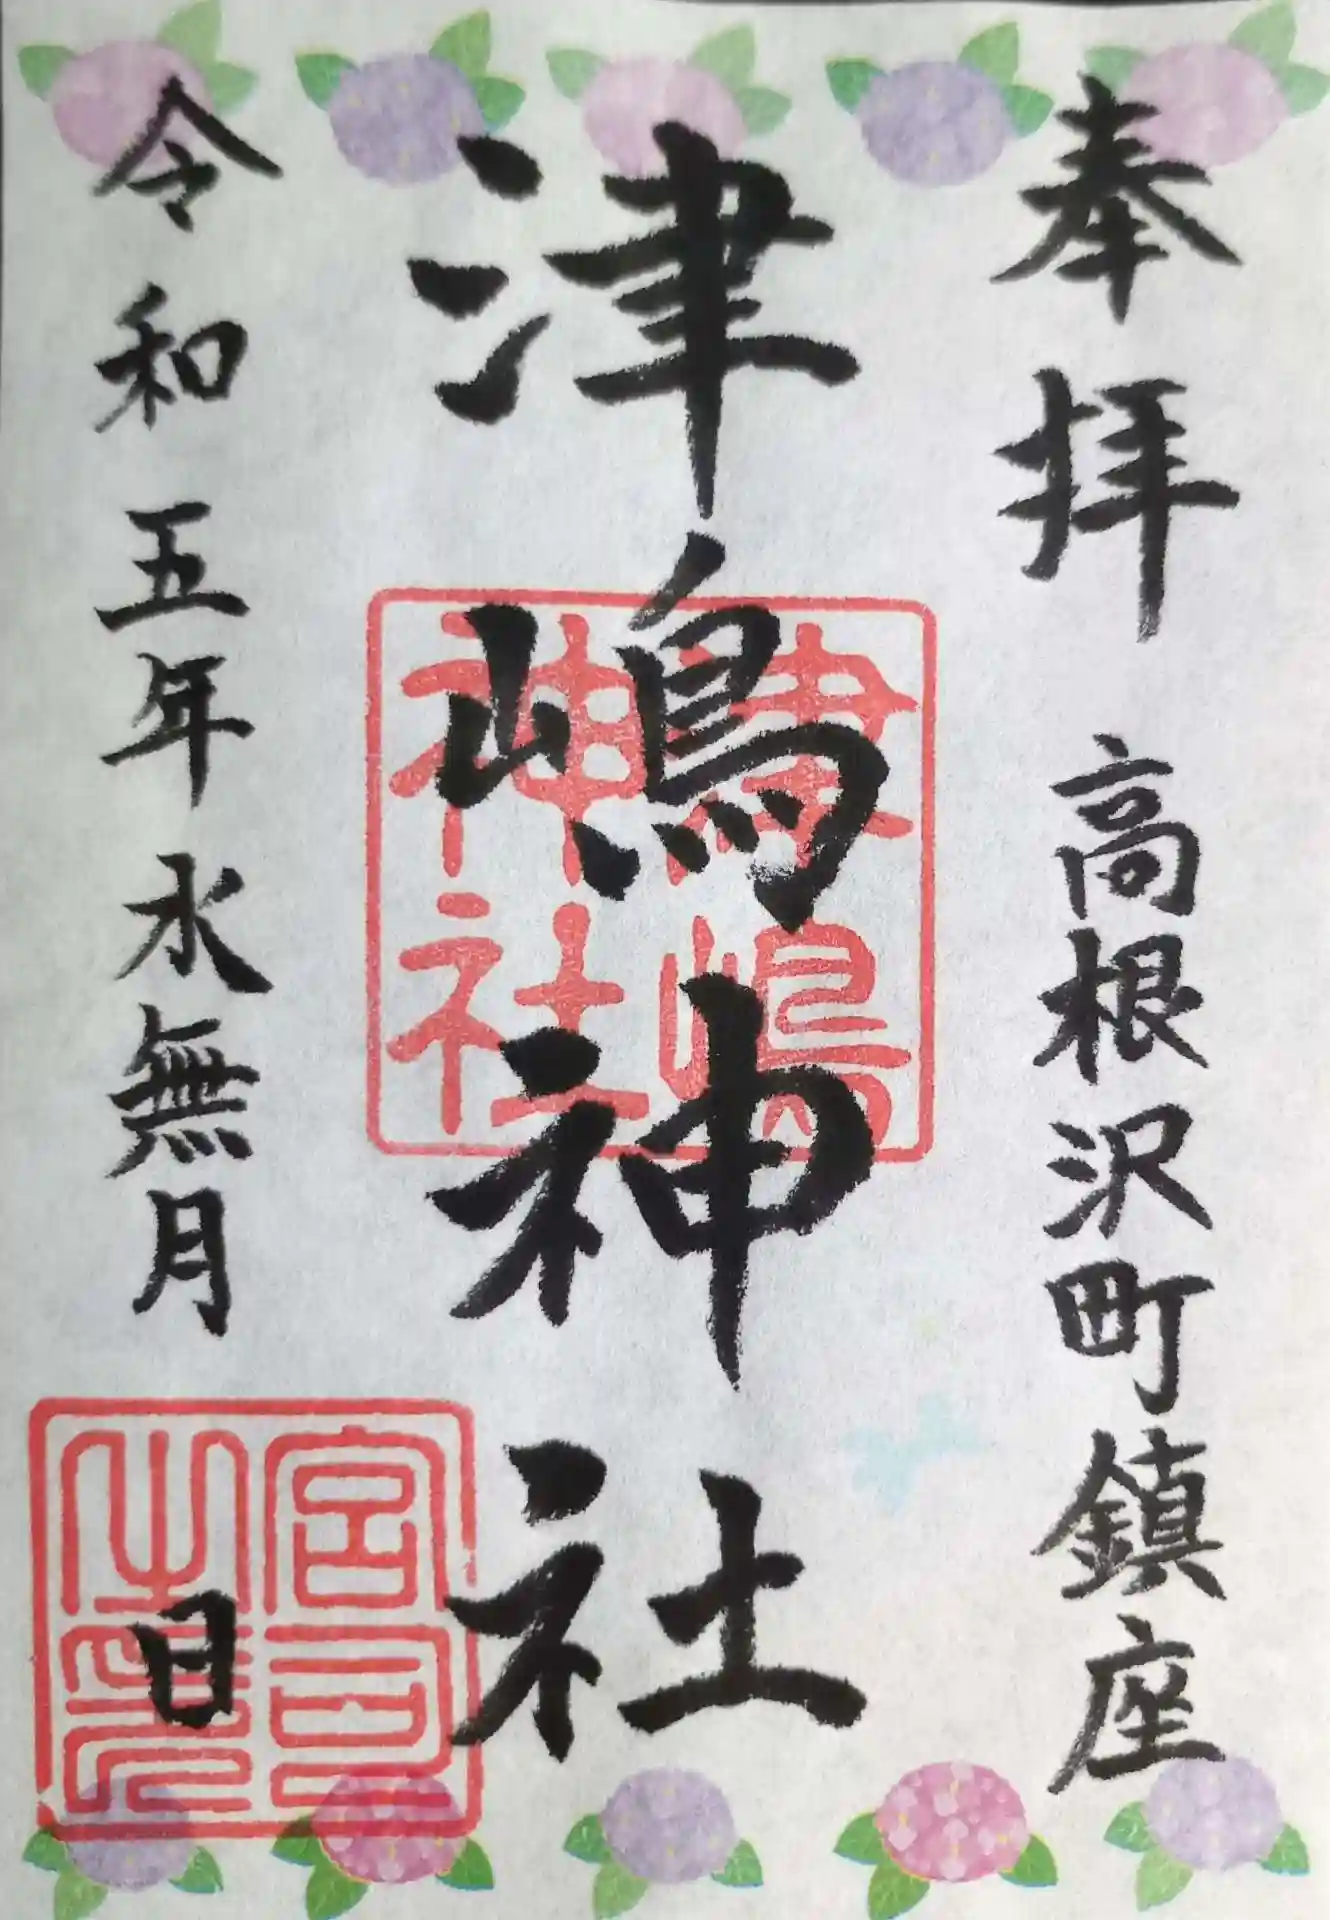 奉拝 高根沢町鎮座
津嶋神社
津嶋
神社
令和五年水無月 日
宮司
之印